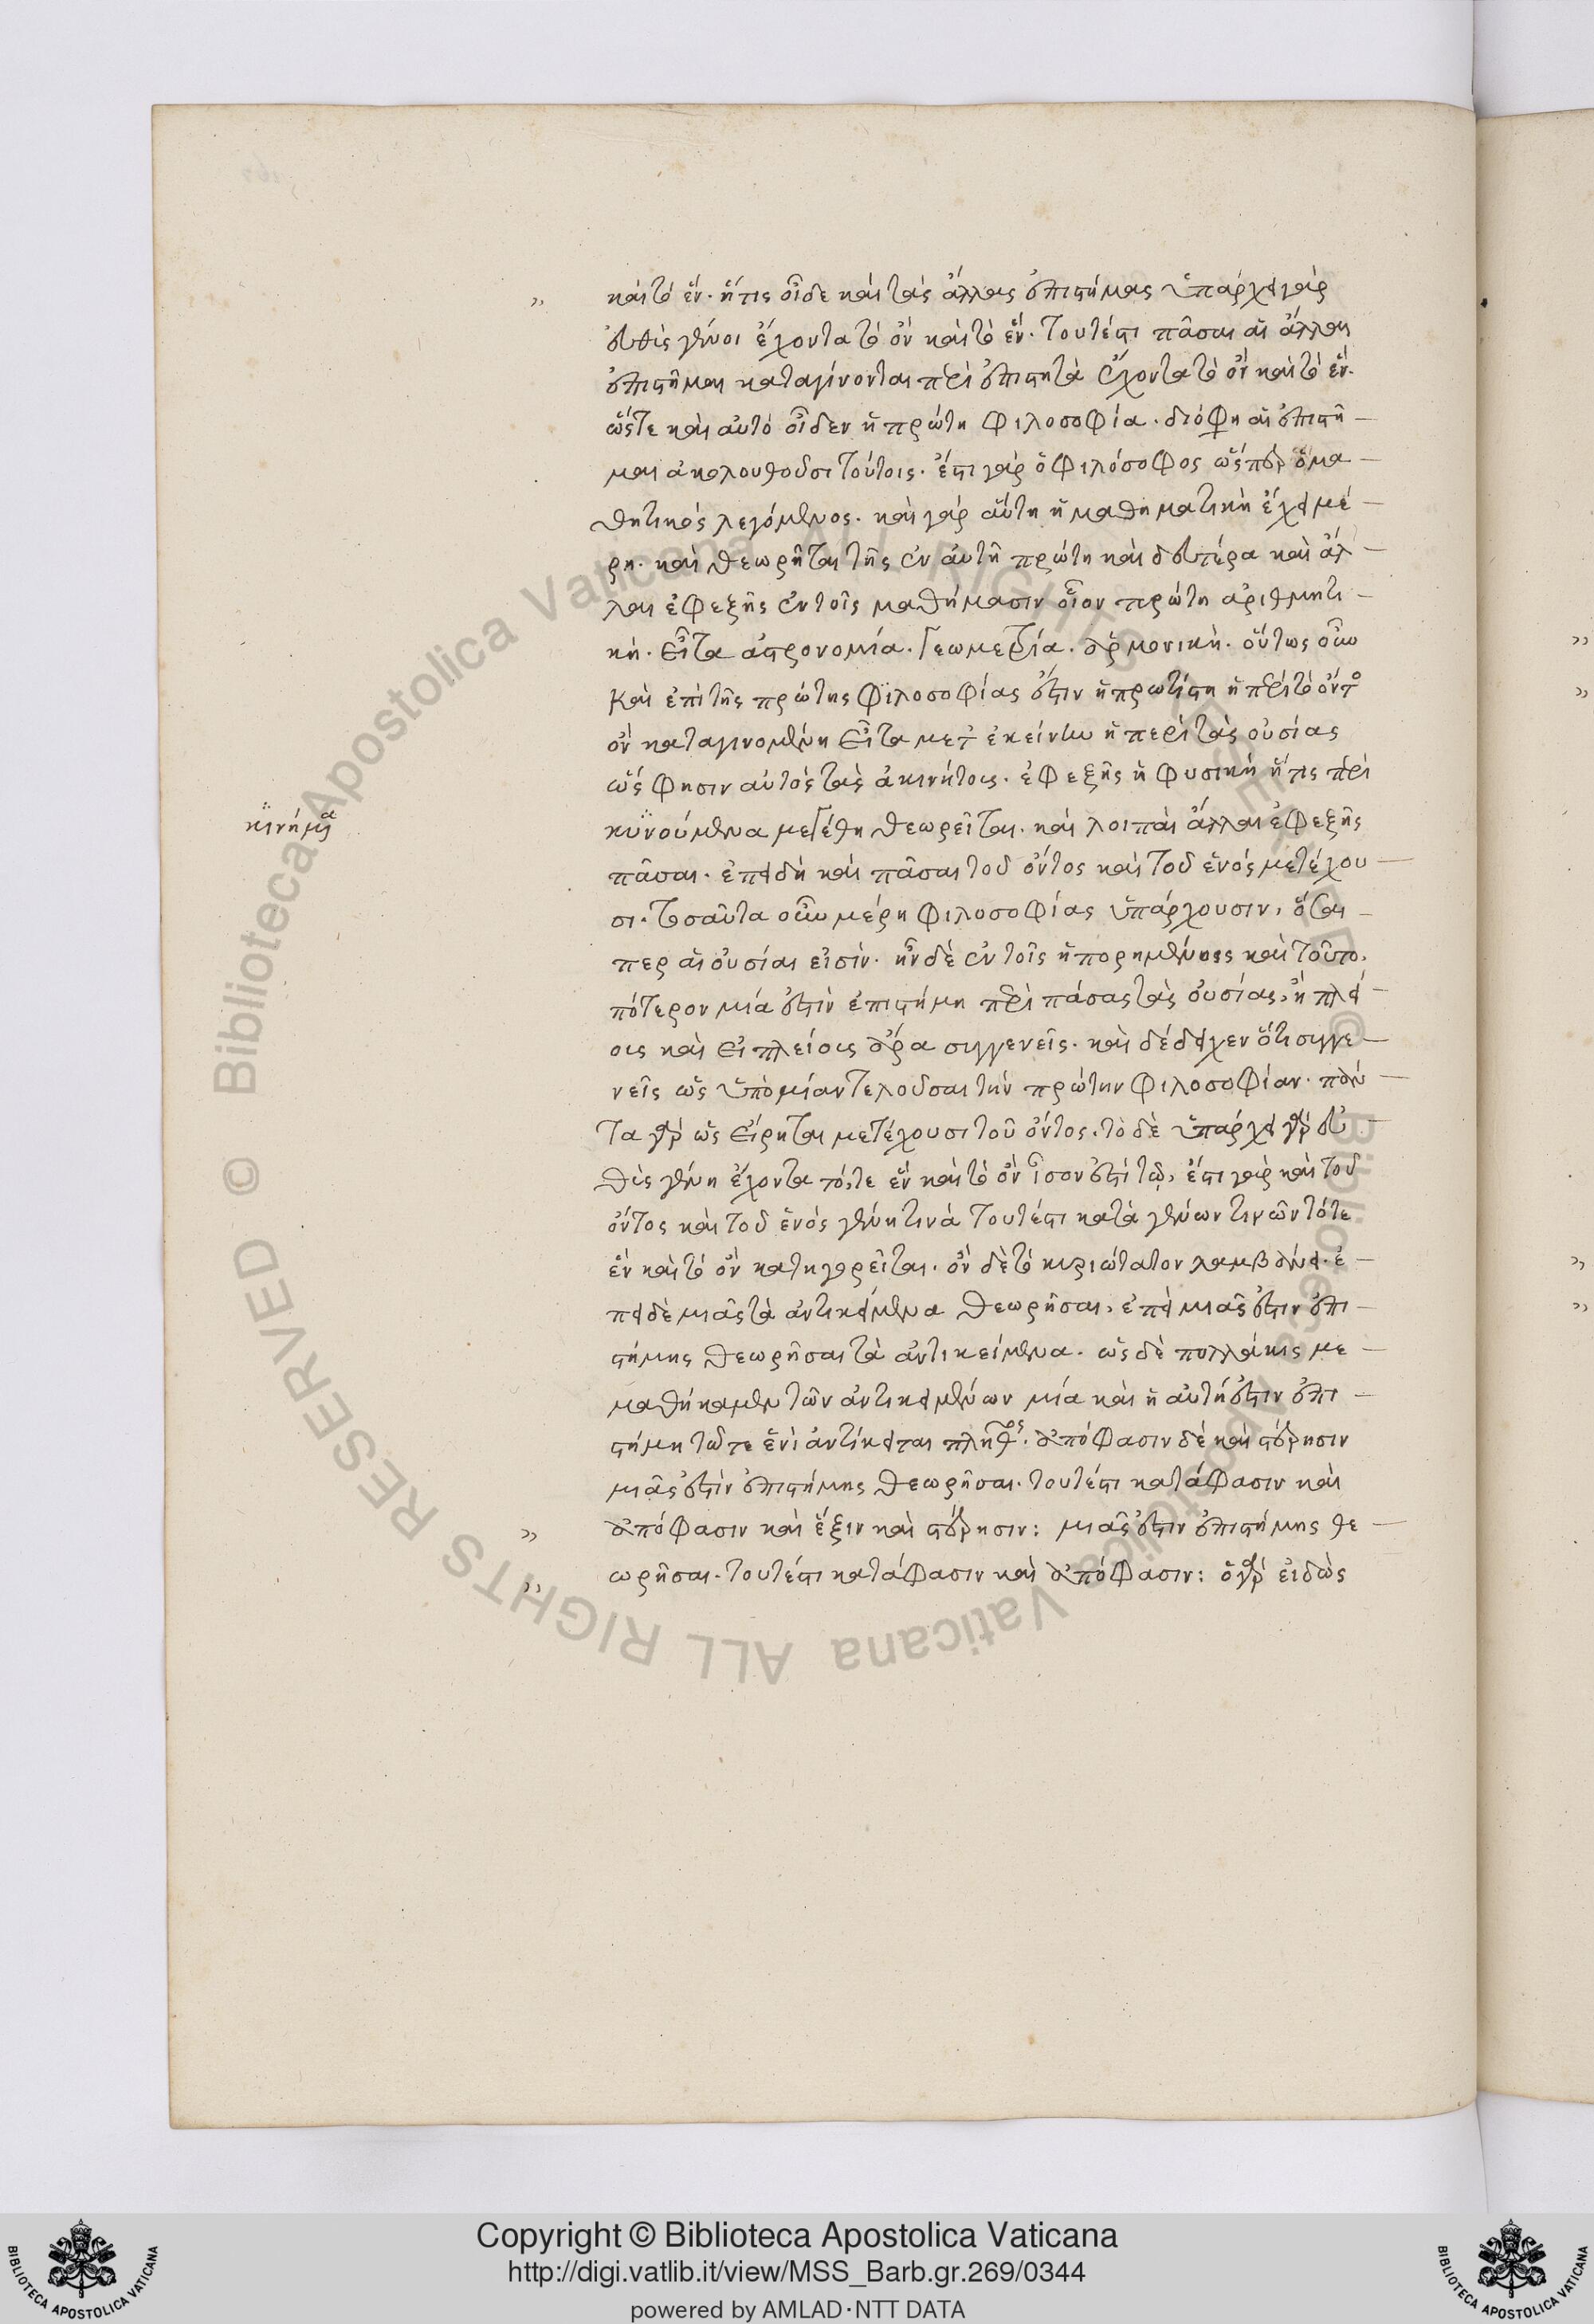 καὶ τὸ ἕν. ἥτις οἶδε καὶ τὰς ἄλλας ἐπιστήμας ὑπάρχει γὰρ
εὐθὺς γένοι ἔχοντα τὸ ὂν καὶ τὸ ἕν. τουτέστι πᾶσαι αἱ ἄλλαι
ἐπιστῆμαι καταγίνονται περὶ ἐπιστητὰ ἔχοντα τὸ ὂν καὶ τὸ ἕν.
ὥστε καὶ αὐτὸ οἶδεν ἡ πρώτη φιλοσοφία. διό φη αἱ ἐπιστῆ
μαι ἀκολουθοῦσι τούτοις. ἔστι γὰρ ὁ φιλόσοφος ὥσπερ ὁ μα
θητικὸς λεγόμενος. καὶ γὰρ αὕτη ἡ μαθηματικὴ ἔχει μέ
ρη. καὶ θεωρῆται τῆς ἐν αὐτῆ πρώτη καὶ δευτέρα καὶ ἄλ
λαι ἐφεξῆς ἐν τοῖς μαθήμασιν οἷον πρώτη ἀριθμητι
κή. εἶτα ἀστρονομία. γεωμετρία. ἁρμονική. οὕτως οὖν
καὶ ἐπὶ τῆς πρώτης φιλοσοφίας ἔστιν ἡ πρωτίστη ἡ περὶ τὸ ὄντως
ὂν καταγινομένη εἶτα μετ' ἐκείνην ἡ περὶ τὰς οὐσίας
ὥς φησιν αὐτὸς τὰς ἀκινήτους. ἐφεξῆς ἡ φυσικὴ ἥτις περὶ
κινήμα
κυνούμενα μεγέθη θεωρεῖται. καὶ λοιπαὶ ἄλλαι ἐφεξῆς
πᾶσαι. ἐπειδὴ καὶ πᾶσαι τοῦ ὄντος καὶ τοῦ ἑνὸς μετέχου
σι. τοσαῦτα οὖν μέρη φιλοσοφίας ὑπάρχουσιν, ὅσαι
περ αἱ οὐσίαι εἰσίν. ἦν δὲ ἐν τοῖς ἠπορημένοις καὶ τοῦτο.
πότερον μία ἐστὶν ἐπιστήμη περὶ πάσας τὰς οὐσίας, ἢ πλεί
ους καὶ εἰ πλείους ἆρα συγγενεῖς. καὶ δέδειχεν ὅτι συγγε
νεῖς ὡς ὑπὸ μίαν τελοῦσαι τὴν πρώτην φιλοσοφίαν. πάν
τα γὰρ ὡς εἴρηται μετέχουσι τοῦ ὄντος. τὸ δὲ ὑπάρχει γὰρ εὐ
θὺς γένη ἔχοντα τό, τε ἓν καὶ τὸ ὂν ἴσον ἐστὶ τῷ, ἔστι γὰρ καὶ τοῦ
ὄντος καὶ τοῦ ἑνὸς γένη τινὰ τουτέστι κατὰ γένων τινῶν τότε
ἓν καὶ τὸ ὂν κατηγορεῖται. ὂν δὲ τὸ κυριώτατον λαμβάνει. ἐ
πεὶ δὲ μιᾶς τὰ ἀντικείμενα θεωρῆσαι, ἐπεὶ μιᾶς ἐστιν ἐπι
στήμης θεωρῆσαι τὰ ἀντικείμενα. ὡς δὲ πολλάκις με
μαθήκαμεν τῶν ἀντικειμένων μία καὶ ἡ αὐτή ἐστιν ἐπι
στήμη τῶ τε ἑνὶ ἀντίκειται πλῆθος. ἀπόφασιν δὲ καὶ στέρησιν
μιᾶς ἐστὶν ἐπιστήμης θεωρῆσαι. τουτέστι κατάφασιν καὶ
ἀπόφασιν καὶ ἕξιν καὶ στέρησιν: μιᾶς ἐστιν ἐπιστήμης θε
ωρῆσαι. τουτέστι κατάφασιν καὶ ἀπόφασιν: ὁ γὰρ εἰδὼς
Copyright © Biblioteca Apostolica Vaticana
http://digi.vatlib.it/view/MSS_Barb.gr.269/0344
powered by AMLAD·NTT DATA